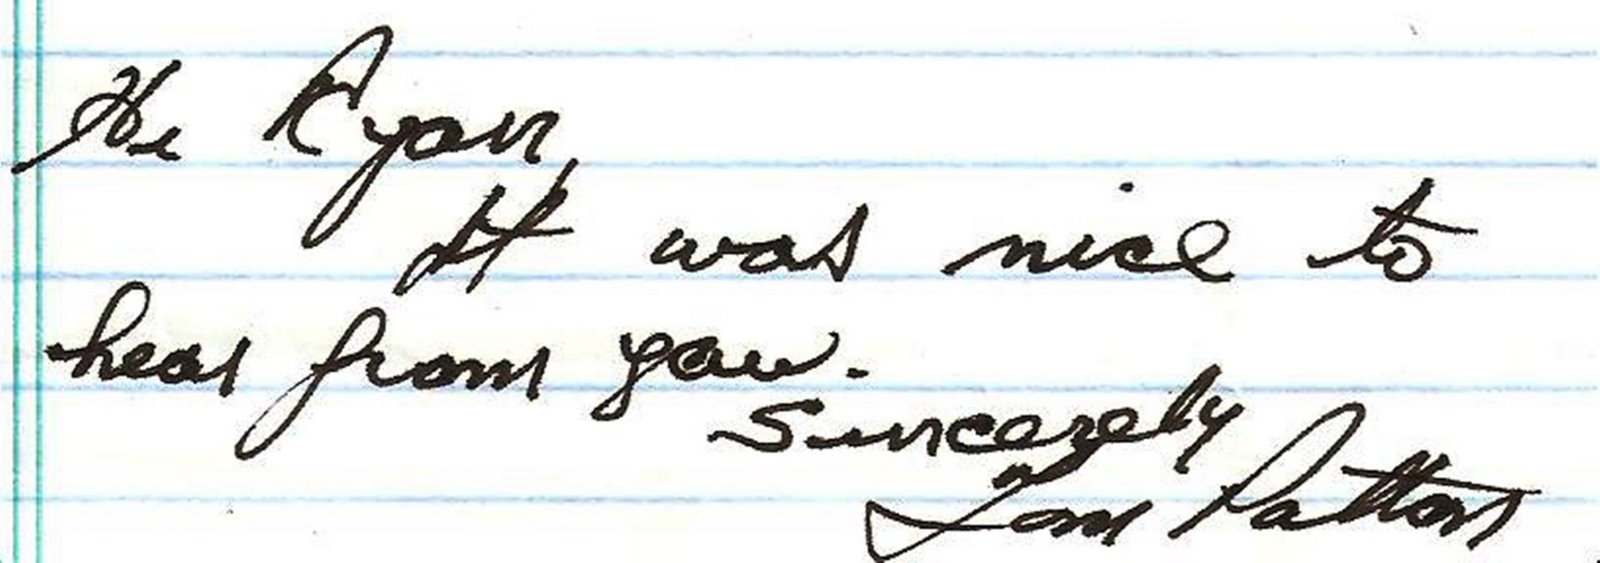 Hi Ryan,
It was nice to
hear from you.
Sincerely
Tom Patton